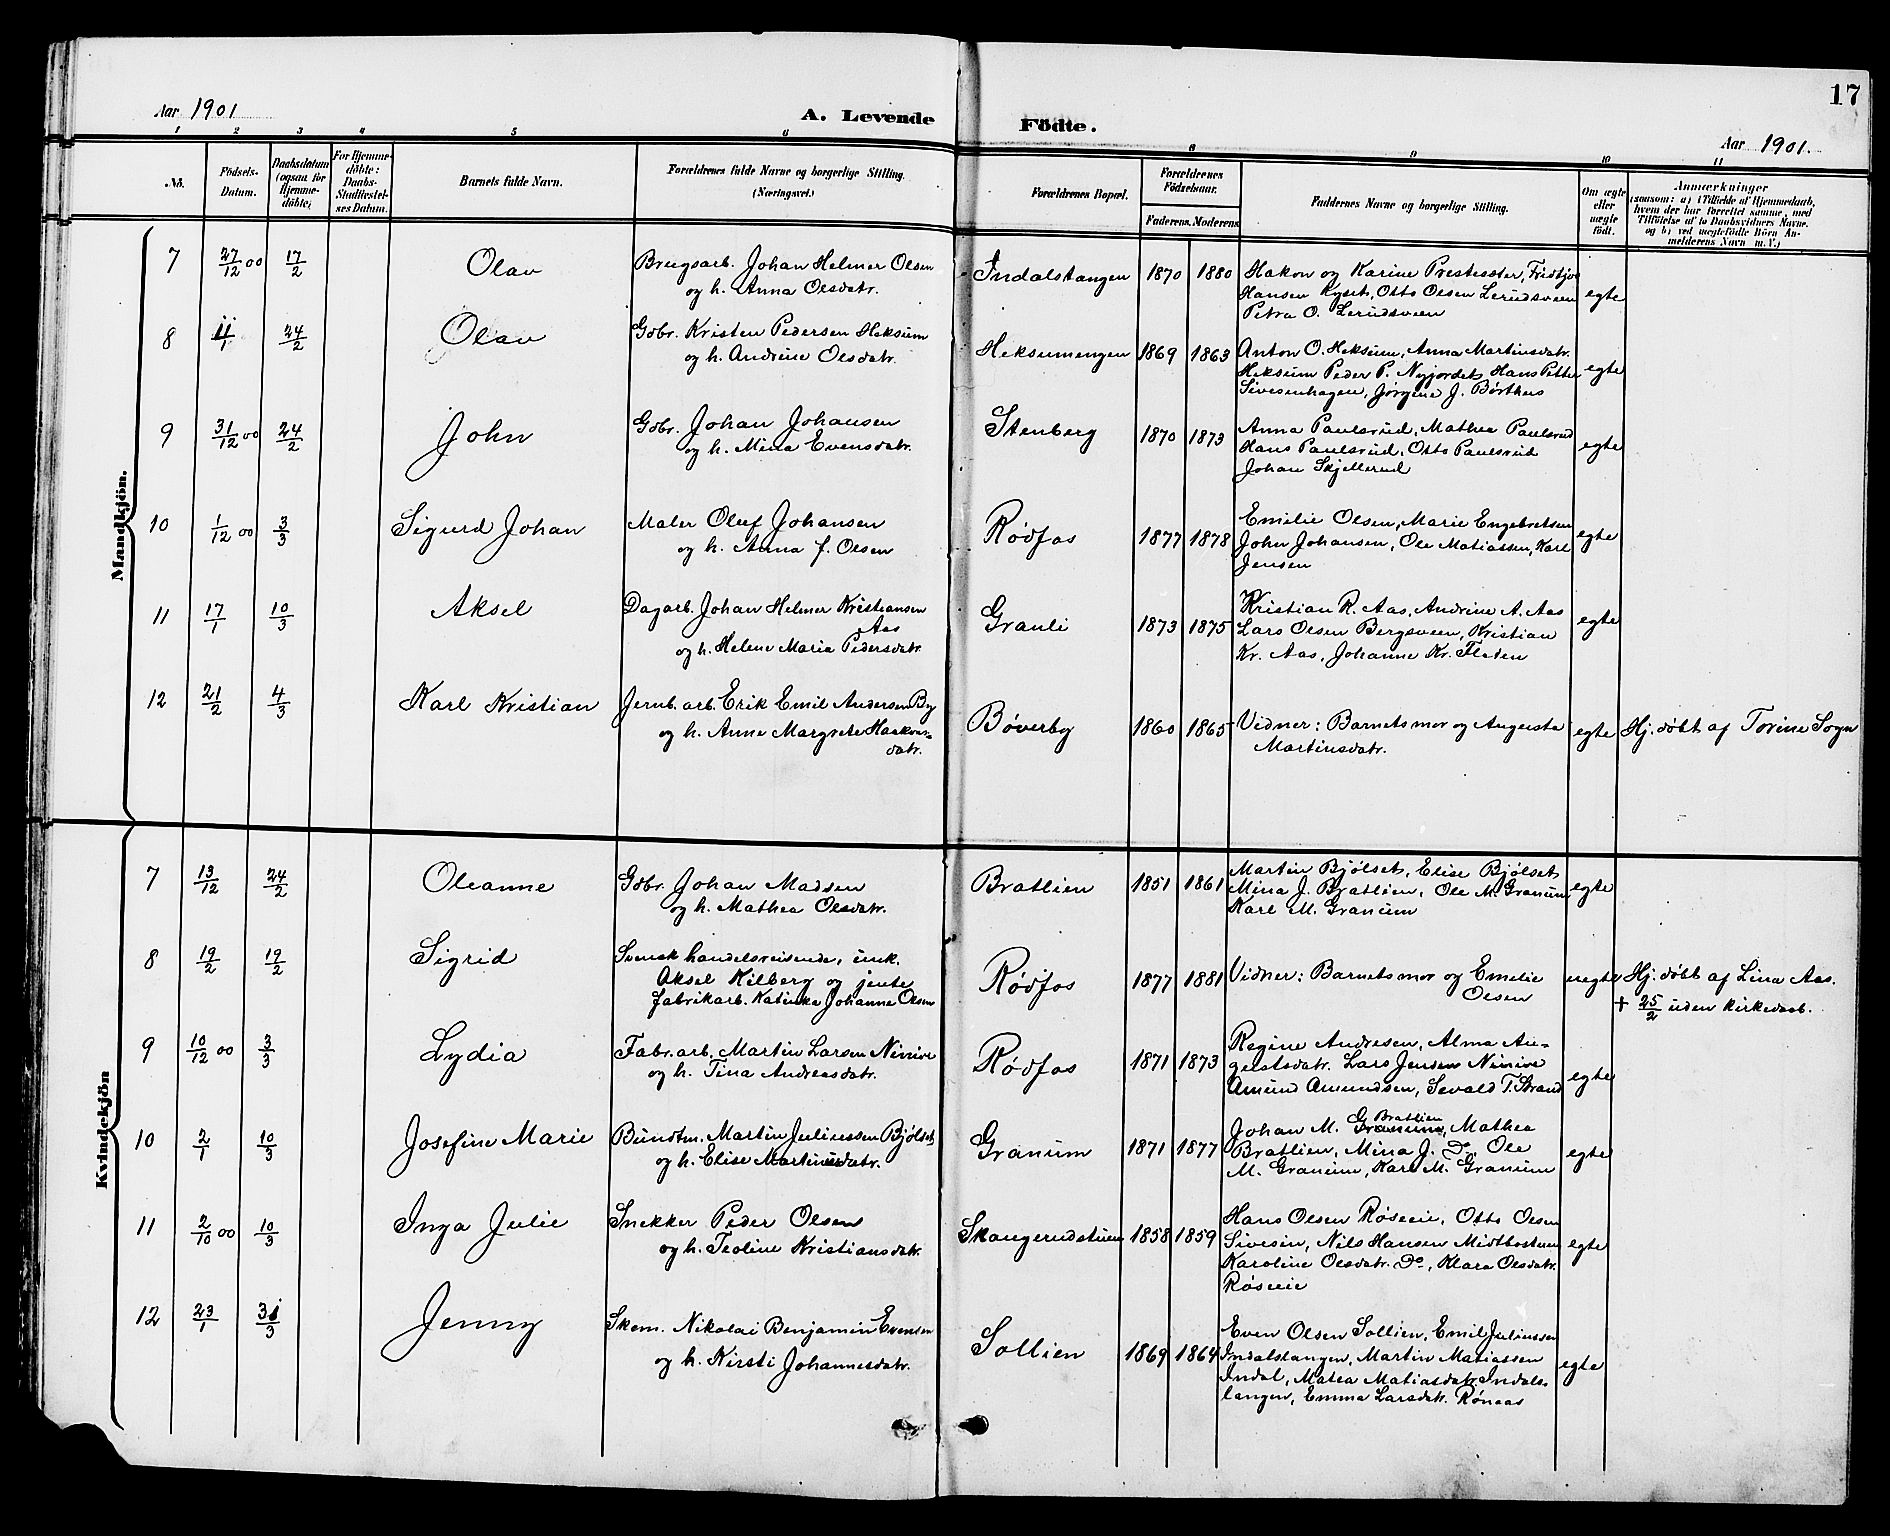 17
Aar 1901
A. Levende Födte.
Aar 1901.
1 2 3 4 5 6 8 9 10 11
No.
Födsels-
Datum.
Daabsdatum
(ogsaa for
Hjemme-
döbte)
For Hjemme-
döbte:
Daabs-
Stadfæstel-
ses Datum.
Barnets fulde Navn.
Forældrenes fulde Navne og borgerlige Stilling.
(Næringsvei.)
Forældrenes Bopæl.
Forældrenes
Födselsaar.
Faderens. Moderens.
Faddernes Navne og borgerlige Stilling.
Om ægte
eller
uægte
født.
Anmærkninger
(saasom: a) i Tilfælde af Hjemmedaab,
hvem der har forrettet samme, med
Tilføielse af to Daabsvidners Navne.
og b) ved uægtefödte Börn An-
melderens Navn m. V.)
Mandkjön.
7 27/12 00 17/2 Olav
Brugsarb. Johan Helmer Olsen
og h. Anna Olsdatr.
Indalstangen 1870 1880
Hakon og Karine Prestesæter, Fridtjov
Hansen Kyset, Otto Olsen Lerudsveen
Petra O. Lerudsveen
egte
8 24/2 Olav
Gbr. Kristen Pedersen Heksum
og h. Andrine Olsdatr.
Heksumengen 1869 1863
Anton O. Heksum, Anna Martinsdatr.
Heksum Peder P. Nyjordet, Hans Petter
Sivesenhagen, Jørgine J. Børthus
egte
9 31/12 00 24/2 John
Gbr. Johan Johansen
og h. Mina Evensdatr.
Stenberg 1870 1873
Anna Paulsrud, Mathea Paulsrud
Hans Paulsrud, Otto Paulsrud
Johan Skjellerud
egte
10 1/12 00 3/3 Sigurd Johan
Maler Oluf Johansen
og h. Anna f. Olsen
Rødfos 1877 1878
Emilie Olsen, Marie Engebretsen
John Johansen, Ole Matiassen, Karl
Jensen
egte
11 17/1 10/3 Aksel
Dagarb. Johan Helmer Kristiansen
Aas
og h. Helene Maria Pedersdatr.
Granli 1873 1875
Kristian R. Aas, Andrine A. Aas
Lars Olsen Bergsveen, Kristian
Kr. Aas, Johanne Kr. Flaten
egte
12 21/2 4/3 Karl Kristian
Jernb. arb. Erik Emil Andersen By
og h. Anne Margrete Haakons-
datr.
Bøverby 1860 1865
Vidner: Barnets mor og Augusta
Martinsdatr.
egte
Hj. døbt af Torine Sogn
Kvindekjön
7 13/12 24/2 Oleanne
Gbr. Johan Madsen
og h. Mathea Olsdatr.
Bratlien 1851 1861
Martin Bjølset, Elise Bjølset
Mina J. Bratlien, Ole M. Granum,
Karl M. Granum
egte
8 19/2 19/2 Sigrid
Svensk handelsreisende, unk.
Aksel Kilberg og jente
fabrikarb. Katinka Johanne Olsen
Rødfos 1877 1881
Vidner: Barnets mor og Emelie
Olsen
uegte
Hj. døbt af Lina Aas.
+ 25/2 uden kirkedaab.
9 10/12 00 3/3 Lydia
Fabr. arb. Martin Larsen Ninive
og h. Tina Andreasdatr.
Rødfos 1871 1873
Regine Andresen, Alma Au-
gustsdatr. Lars Jensen Ninive
Amund Amundsen, Sevald T. Strand
egte
10 2/1 10/3 Josefine Marie
Bundtm. Martin Juliussen Bjølset
og h. Elise Martinusdatr.
Granum 1871 1877
Johan M. Granum, Bratlien Mathea
Bratlien, Mina J. Do, Ole
M. Granum, Karl M. Granum
egte
11 2/10 00 10/3 Inga Julie
Snekker Peder Olsen
og h. Teoline Kristiansdatr.
Skangerudstuen 1858 1859
Hans Olsen Røseie, Otto Olsen
Sivesin, Nils Hansen Midtbostuen
Karoline Olsdatr. Do, Klara Olsdatr.
Røseie
egte
12 23/1 31/3 Jenny
Skom. Nikolai Benjamin Evensen
og h. Kirsti Johannesdatr.
Sollien 1869 1864
Even Olsen Sollien, Emil Juliussen
Indalstangen, Martin Matiassen
Indal, Matea Matiasdatr. Indals-
tangen, Emma Larsdatr. Røneaas
egte